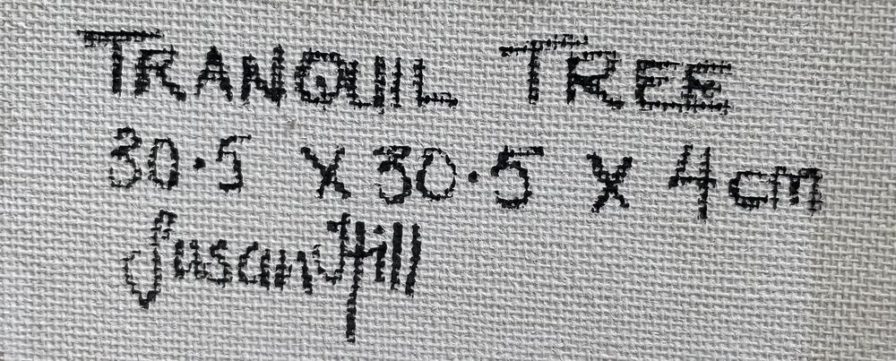 TRANQUIL TREE
30·5 X 30·5 X 4cm
Susan Hill